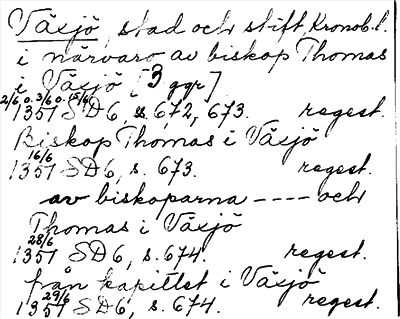 Växjö, stad och stift, Kronob. l.
i närvaro av biskop Thomas
i Växjö [3 ggr]
2/6 o. 3/6 o. 15/6
1351 SD6, s. 672, 673. regest.
Biskop Thomas i Växjö
16/6
1351 SD6, s. 673. regest.
av biskoparna ---- och
Thomas i Växjö
28/6
1351 SD6, s. 674. regest.
från kapitlet i Växjö
29/6
1351 SD6, s. 674. regest.